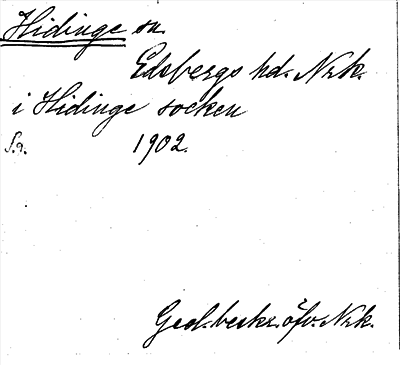 Hidinge sn.
Edsbergs hd. Nrk.
i Hidinge socken
S. 9. 1902.
Geol. beskr. öfv. Nrk.